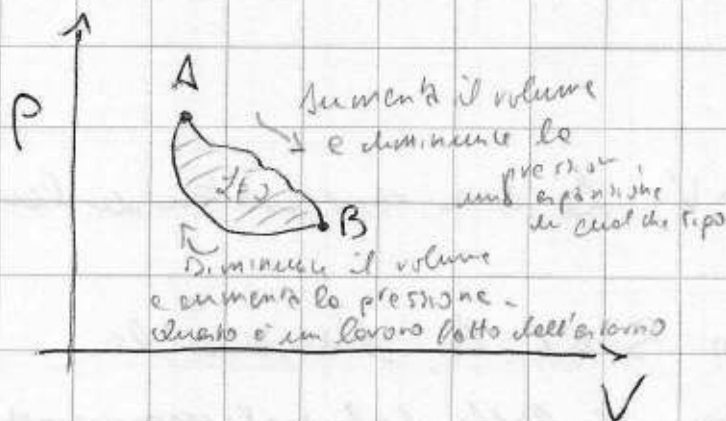 P
A
Aumenta il volume
e diminuisce la
pressione
una espansione
di qualche tipo
B
Diminuisce il volume
e aumenta la pressione.
Questo è un lavoro fatto dall'esterno
V